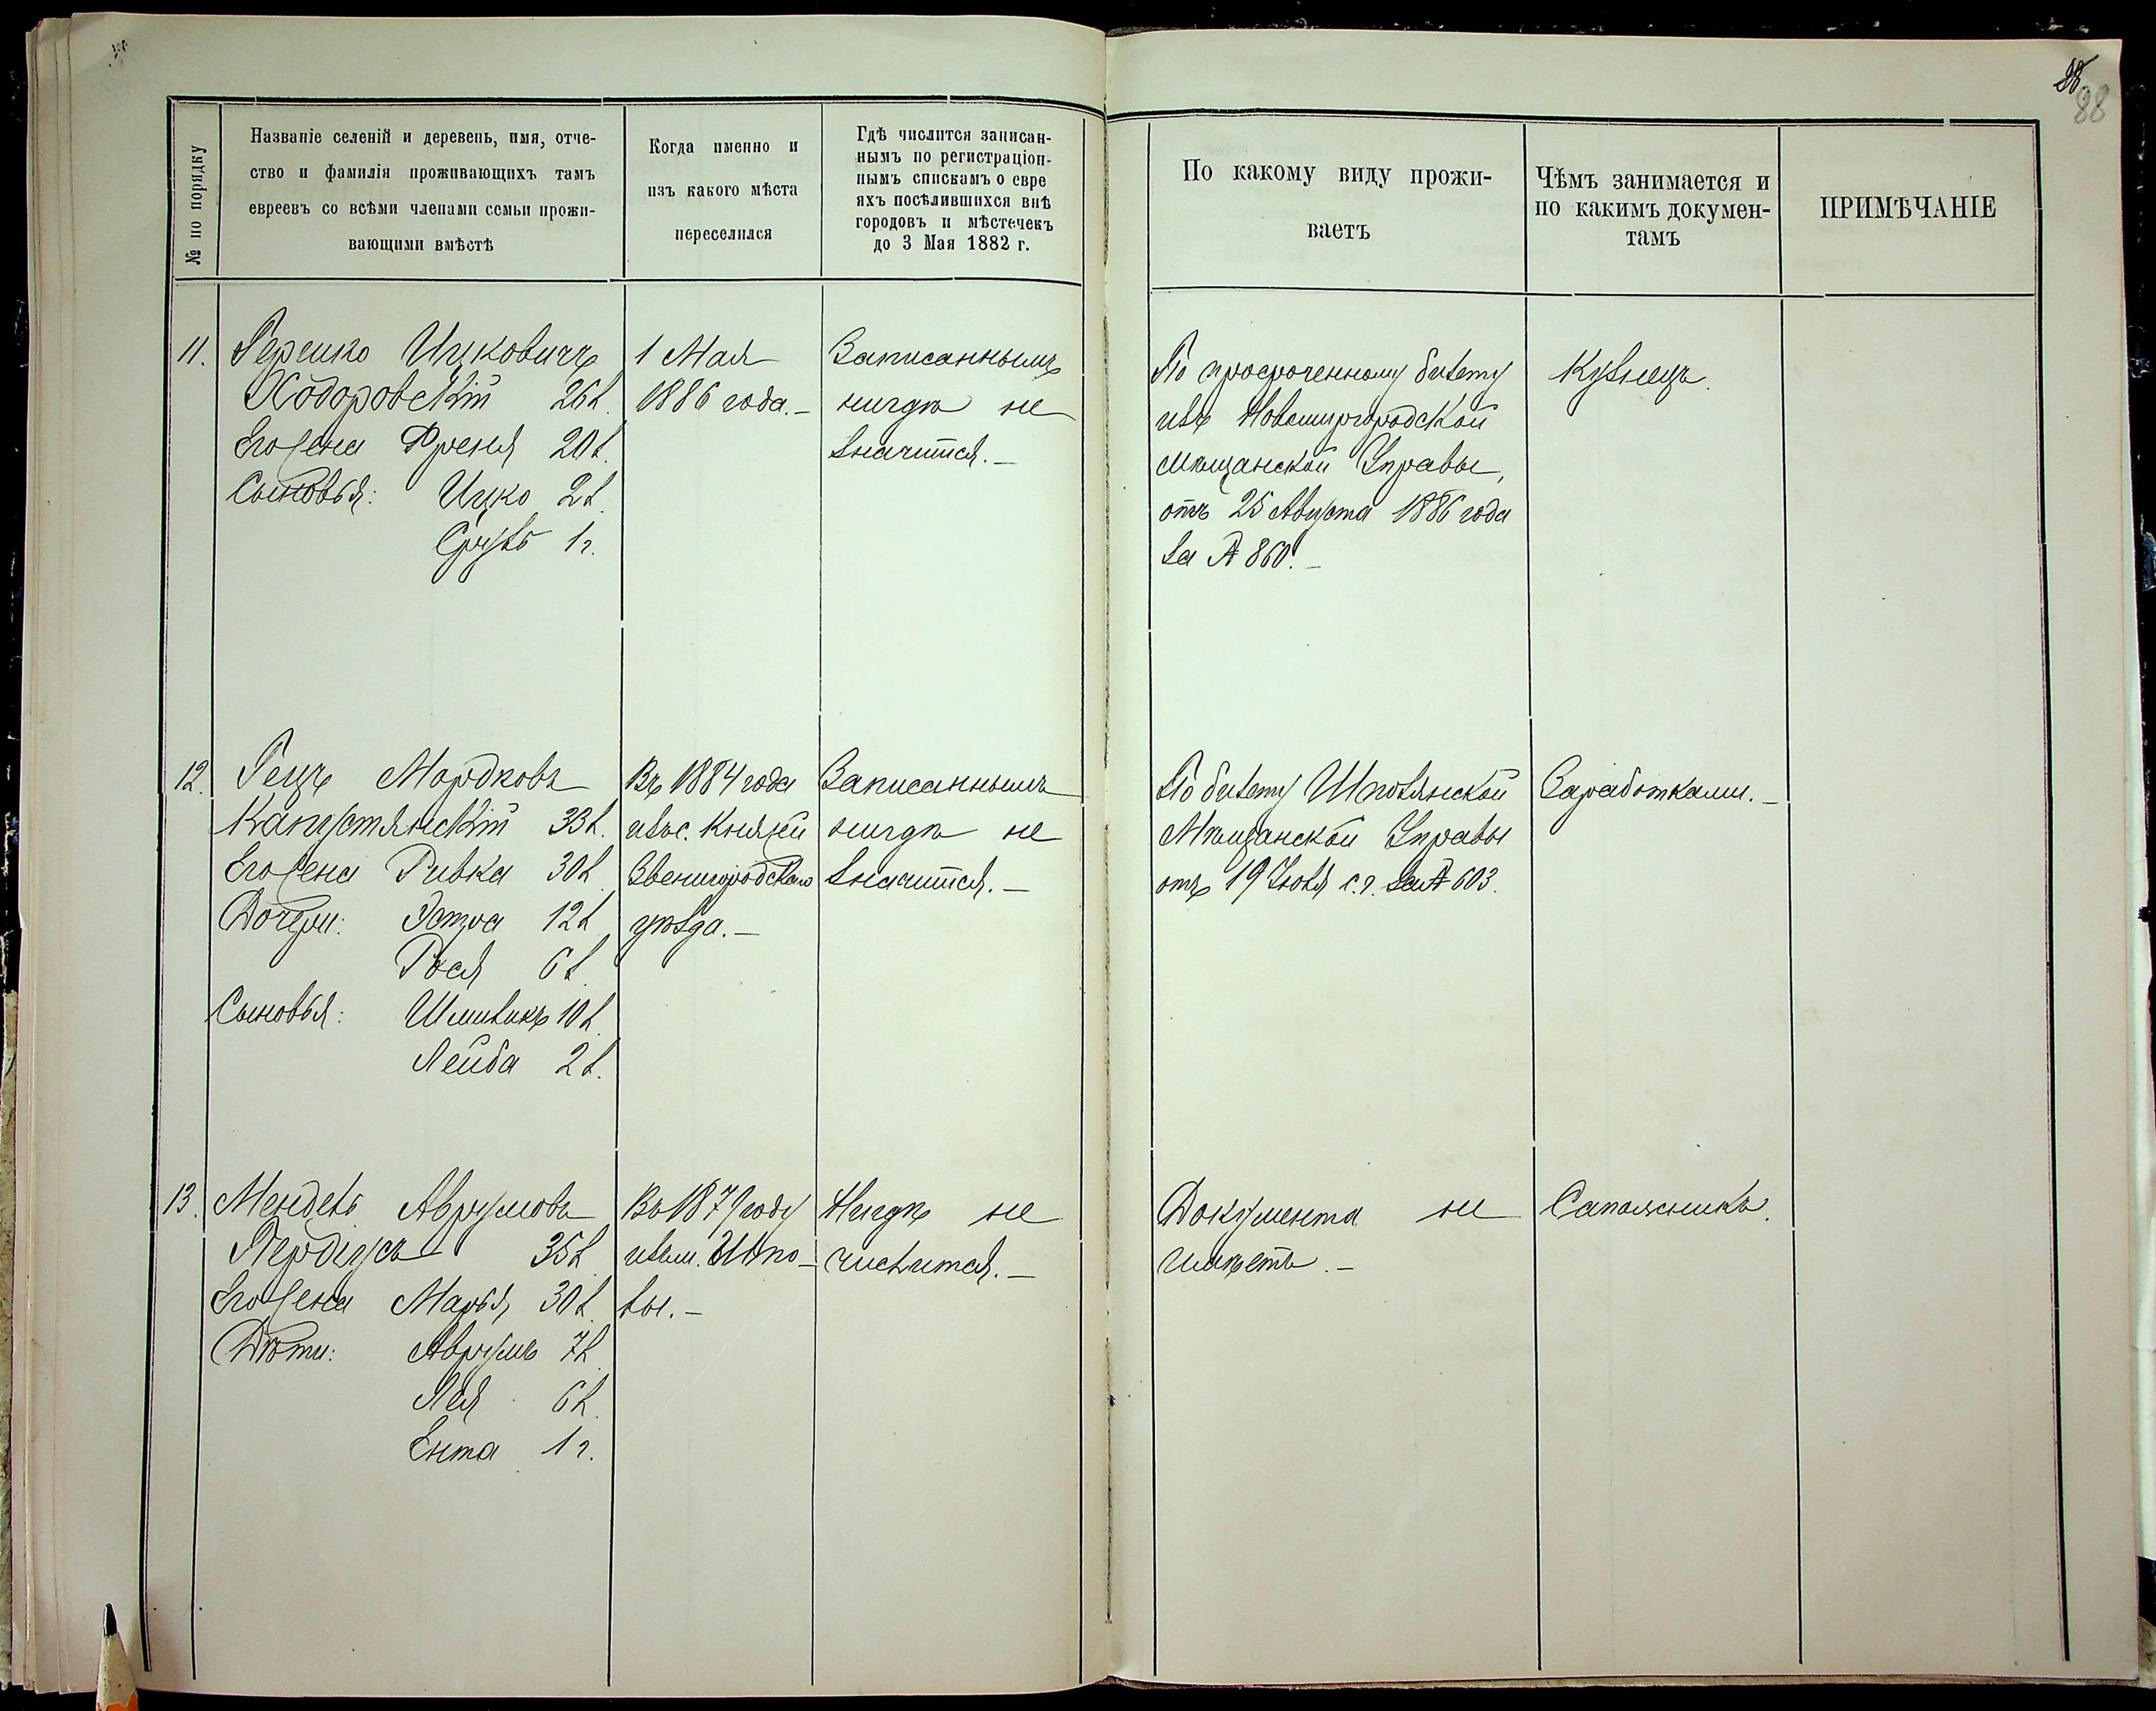 28.
88
№ по порядку
Названіе селеній и деревень, имя, отче-
ство и фамилія проживающихъ тамъ
евреевъ со всѣми членами семьи прожи-
вающими вмѣстѣ
Когда именно и
изъ какого мѣста
переселился
Гдѣ числится записан-
нымъ по регистраціон-
нымъ спискамъ о евре
яхъ посѣлившихся внѣ
городовъ и мѣстечекъ
до 3 Мая 1882 г.
По какому виду прожи-
ваетъ
Чѣмъ занимается и
по какимъ докумен-
тамъ
ПРИМѢЧАНІЕ
11.
Гершко Ицковичъ
Ходоровскій 26 л.
Его жена Френя 20 л.
Сыновья: Ицко 2 л.
Сруль 1 г.
1 Мая
1886 года. —
Записаннымъ
нигдѣ не
значится. —
По просроченному билету
изъ Новомиргородской
мѣщанской Управы,
отъ 25 Августа 1886 года
за № 860. —
Кузнецъ.
12.
Гецъ Мордковъ
Капустянскій 33 л.
Его жена Ривка 30 л.
Дочери: Эстра 12 л.
Рося 6 л.
Сыновья: Шмиликъ 10 л.
Лейба 2 л.
Въ 1884 года
изъ с. Княжей
Звенигородскаго
уѣзда. —
Записаннымъ
нигдѣ не
значится. —
По билету Шполянской
Мѣщанской Управы
отъ 19 Іюля с. г. за № 603.
Заработками. —
13.
Мендель Аврумовъ
35 л.
Его жена Марья, 30 л.
Дѣти: Аврумъ 7 л.
Лея 6 л.
Ента 1 г.
Въ 1879 году
изъ м. Шпо-
лы. —
Нигдѣ не
числится. —
Документа не
имѣетъ. —
Сапожникъ.